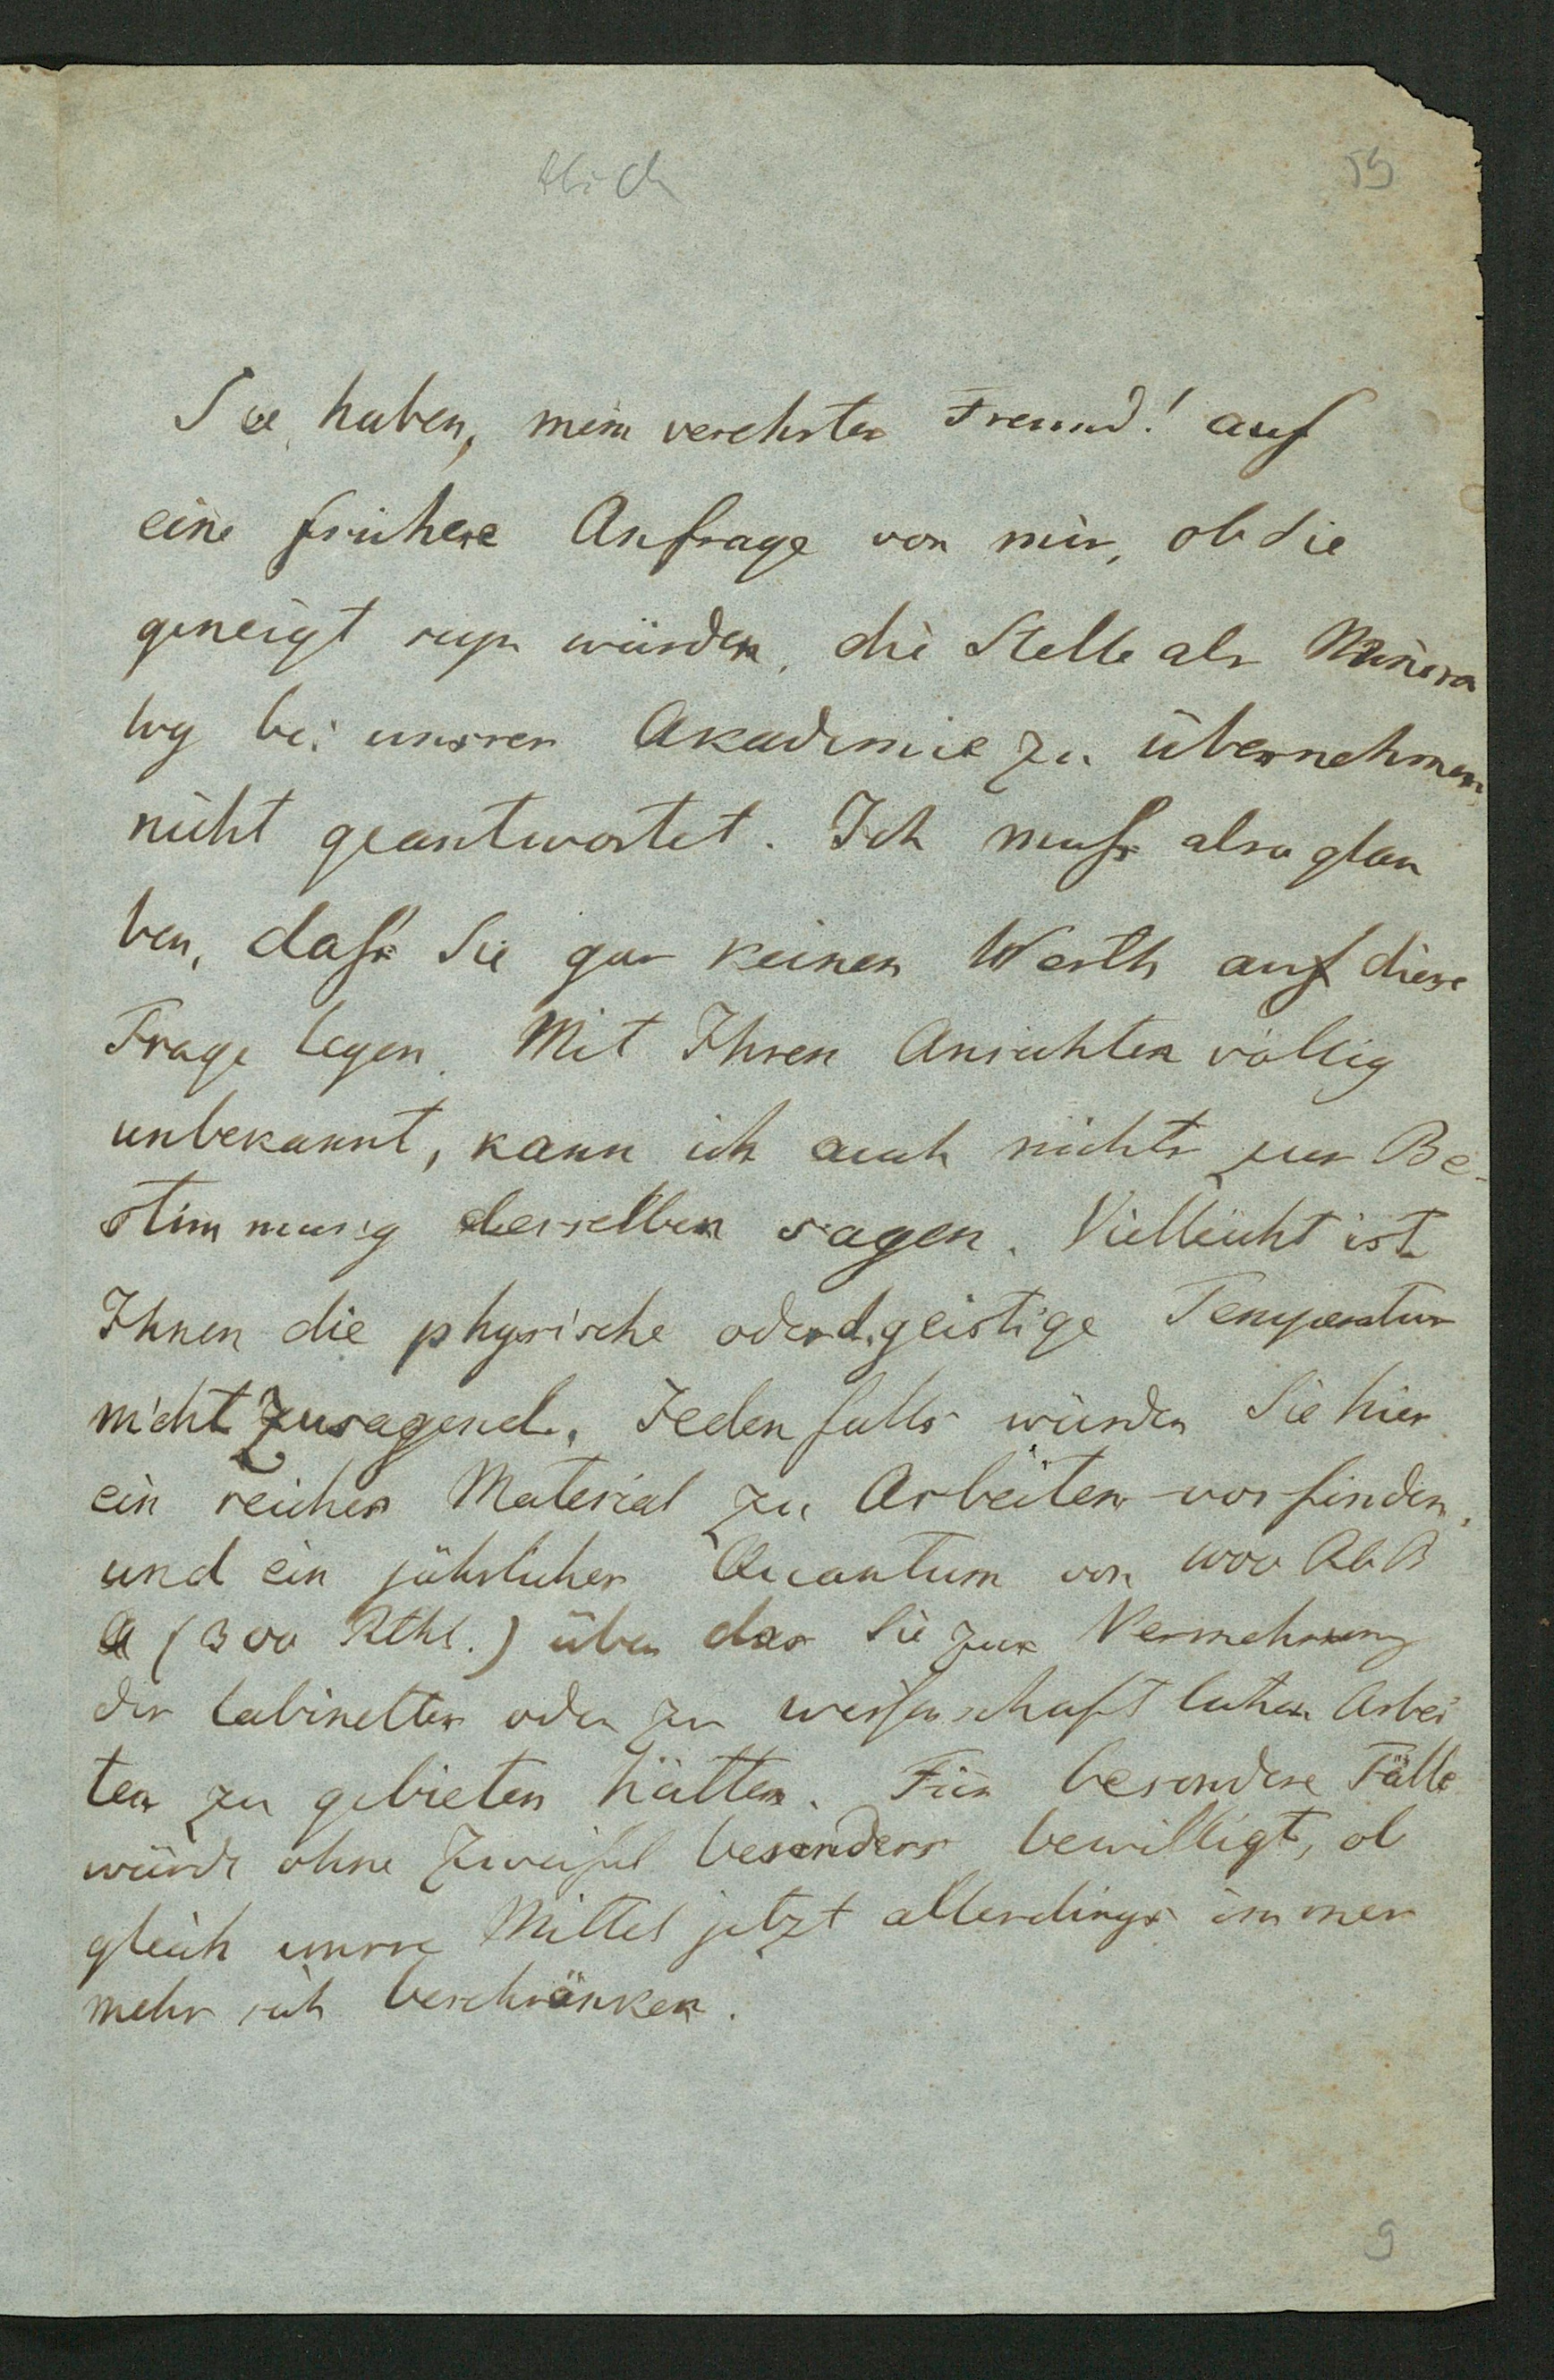 Abich
59
Sie haben, mein verehrter Freund! auf
eine frühere Anfrage von mir, ob Sie
geneigt seyn würden, die Stelle als Minera
log bei unsrer Akademie zu übernehmen,
nicht geantwortet. Ich muss also glau
ben, dass Sie gar keinen Werth auf diese
Frage legen. Mit Ihren Ansichten völlig
unbekannt, kann ich auch nichts zur Be-
stimmung derselben sagen. Vielleicht ist
Ihnen die physische oder d. geistige Temperatur
nicht zusagend. Jedenfalls würden Sie hier
ein reiches Material zu Arbeiten vorfinden,
und ein jährliches Quantum von 1000 Rb. B
(300 Rthl.) über das Sie zur Vermehrung
des Cabinettes oder zu wissenschaftlichen Arbei
ten zu gebieten hätten. Für besondere Fälle
würde ohne Zweifel besonders bewilligt, ob
gleich unsre Mittel jetzt allerdings immer
mehr sich beschränken.
9